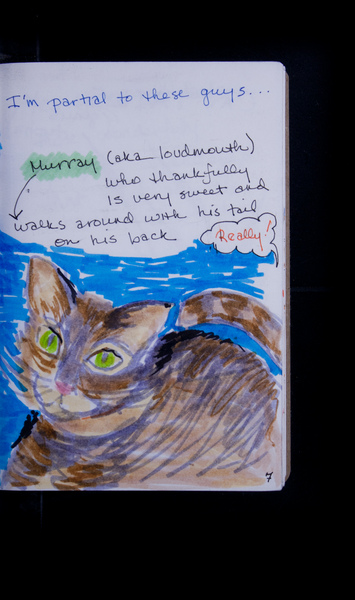 I'm partial to these guys...
Murray (aka loudmouth)
who thankfully
is very sweet and
walks around with his tail
on his back
Really!
7